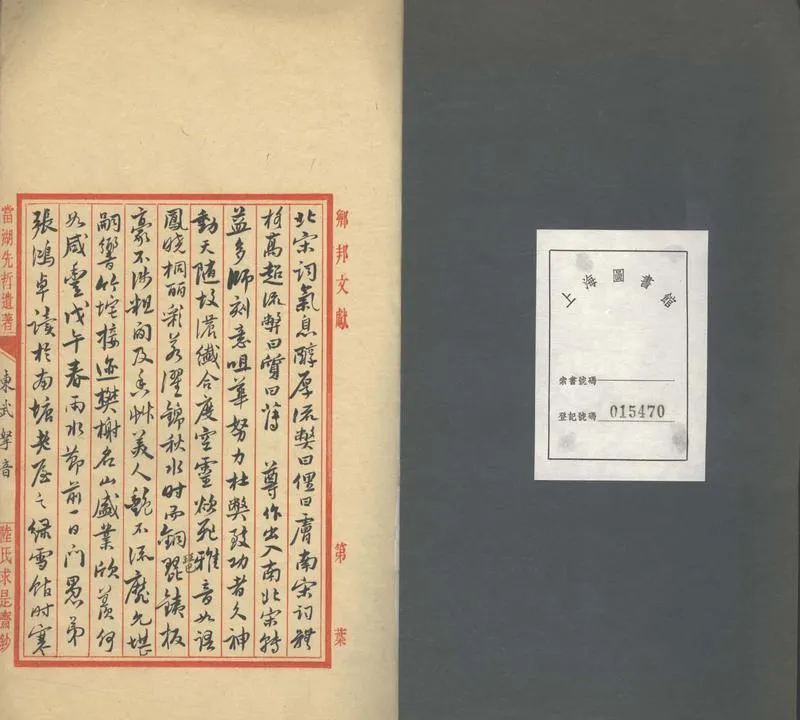 鄉邦文獻
第 葉
北宋詞氣息醇厚流弊曰俚曰膚南宋詞體
格高超流弊曰質曰薄 尊作出入南北宋特
益多師刻意咀華努力杜弊致功者久神
動天隨故濃纖合度空靈欲死雅音如語
鳳曉桐麗彩若濯錦秋水时而銅琵琶鐵板
豪不涉粗间及香艸美人艷不流靡允堪
嗣響竹垞接迹樊榭名山盛業欣羨何
如咸豐戊午春雨水節前一日門愚弟
張鴻卓讀於南塘老屋之綠雪龕时寒
當湖先哲遺著
東武挐音
陸氏求是齋鈔
上海圖書館
索書號碼
登記號碼 015470